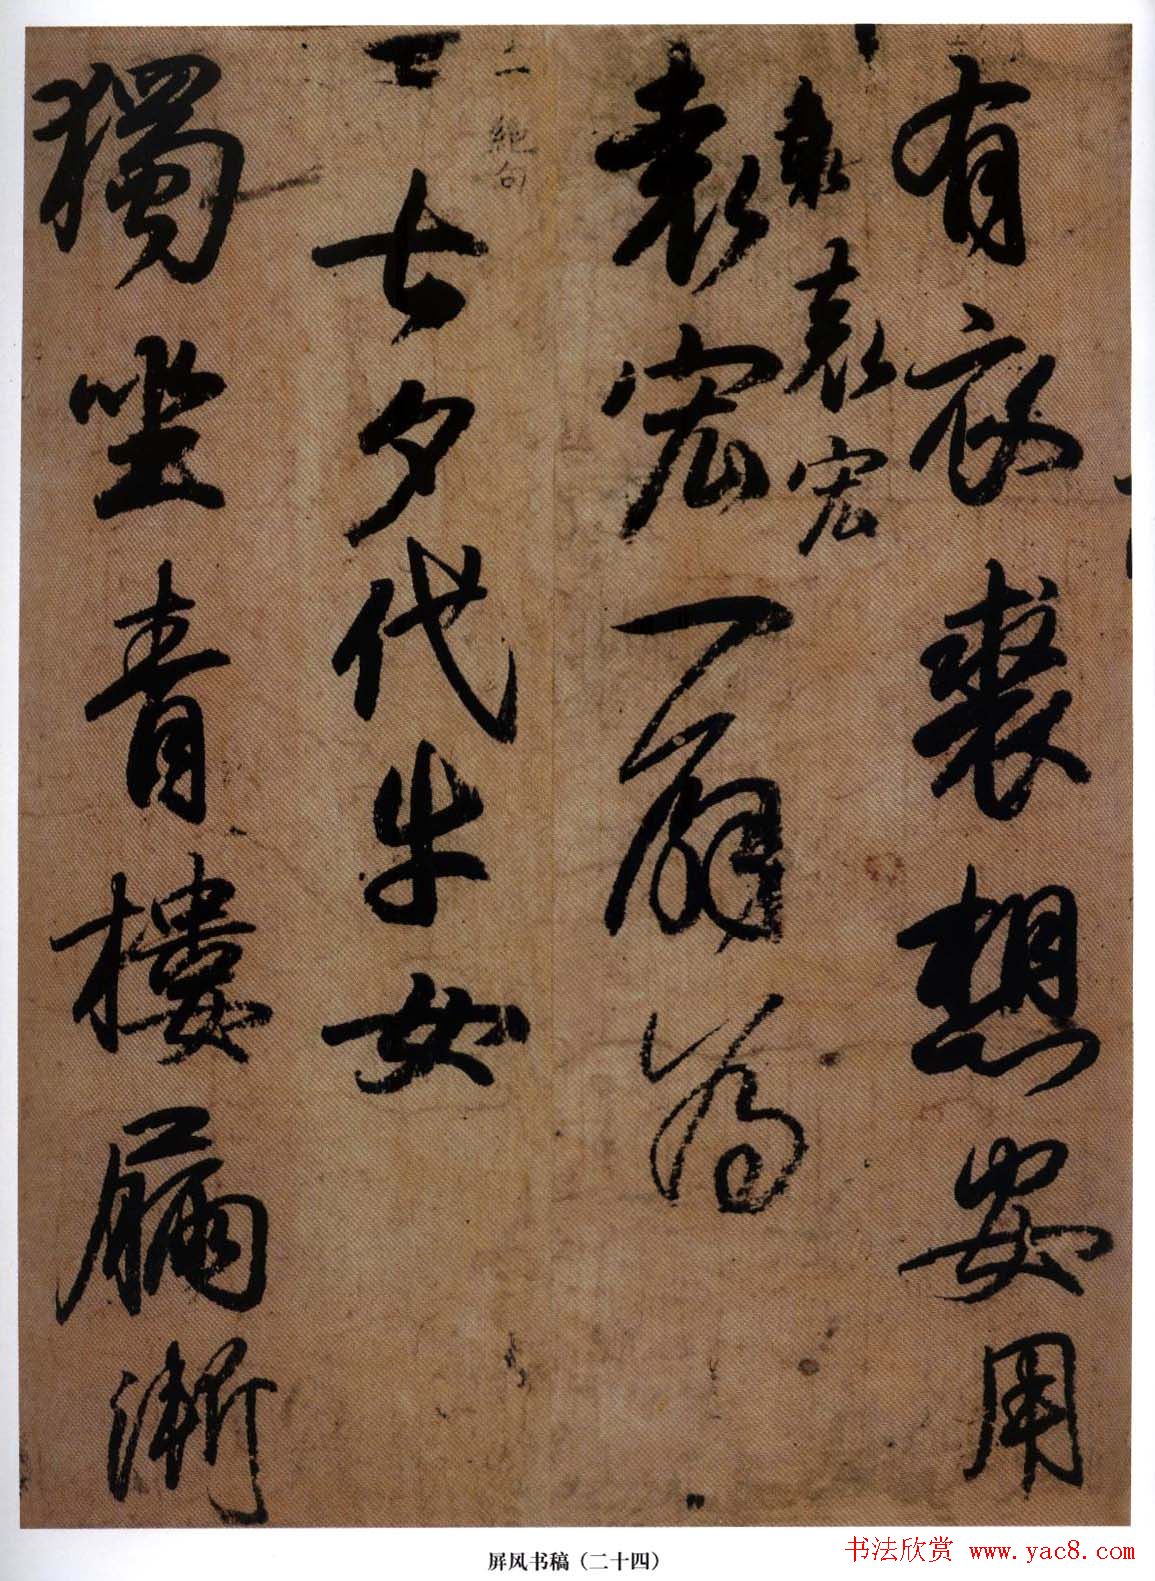 有衣裘想安用
袁
袁宏
袁宏一扇为
二绝句
七夕代牛女
獨坐青樓漏漸
屏风书稿（二十四）
书法欣赏 www.yac8.com